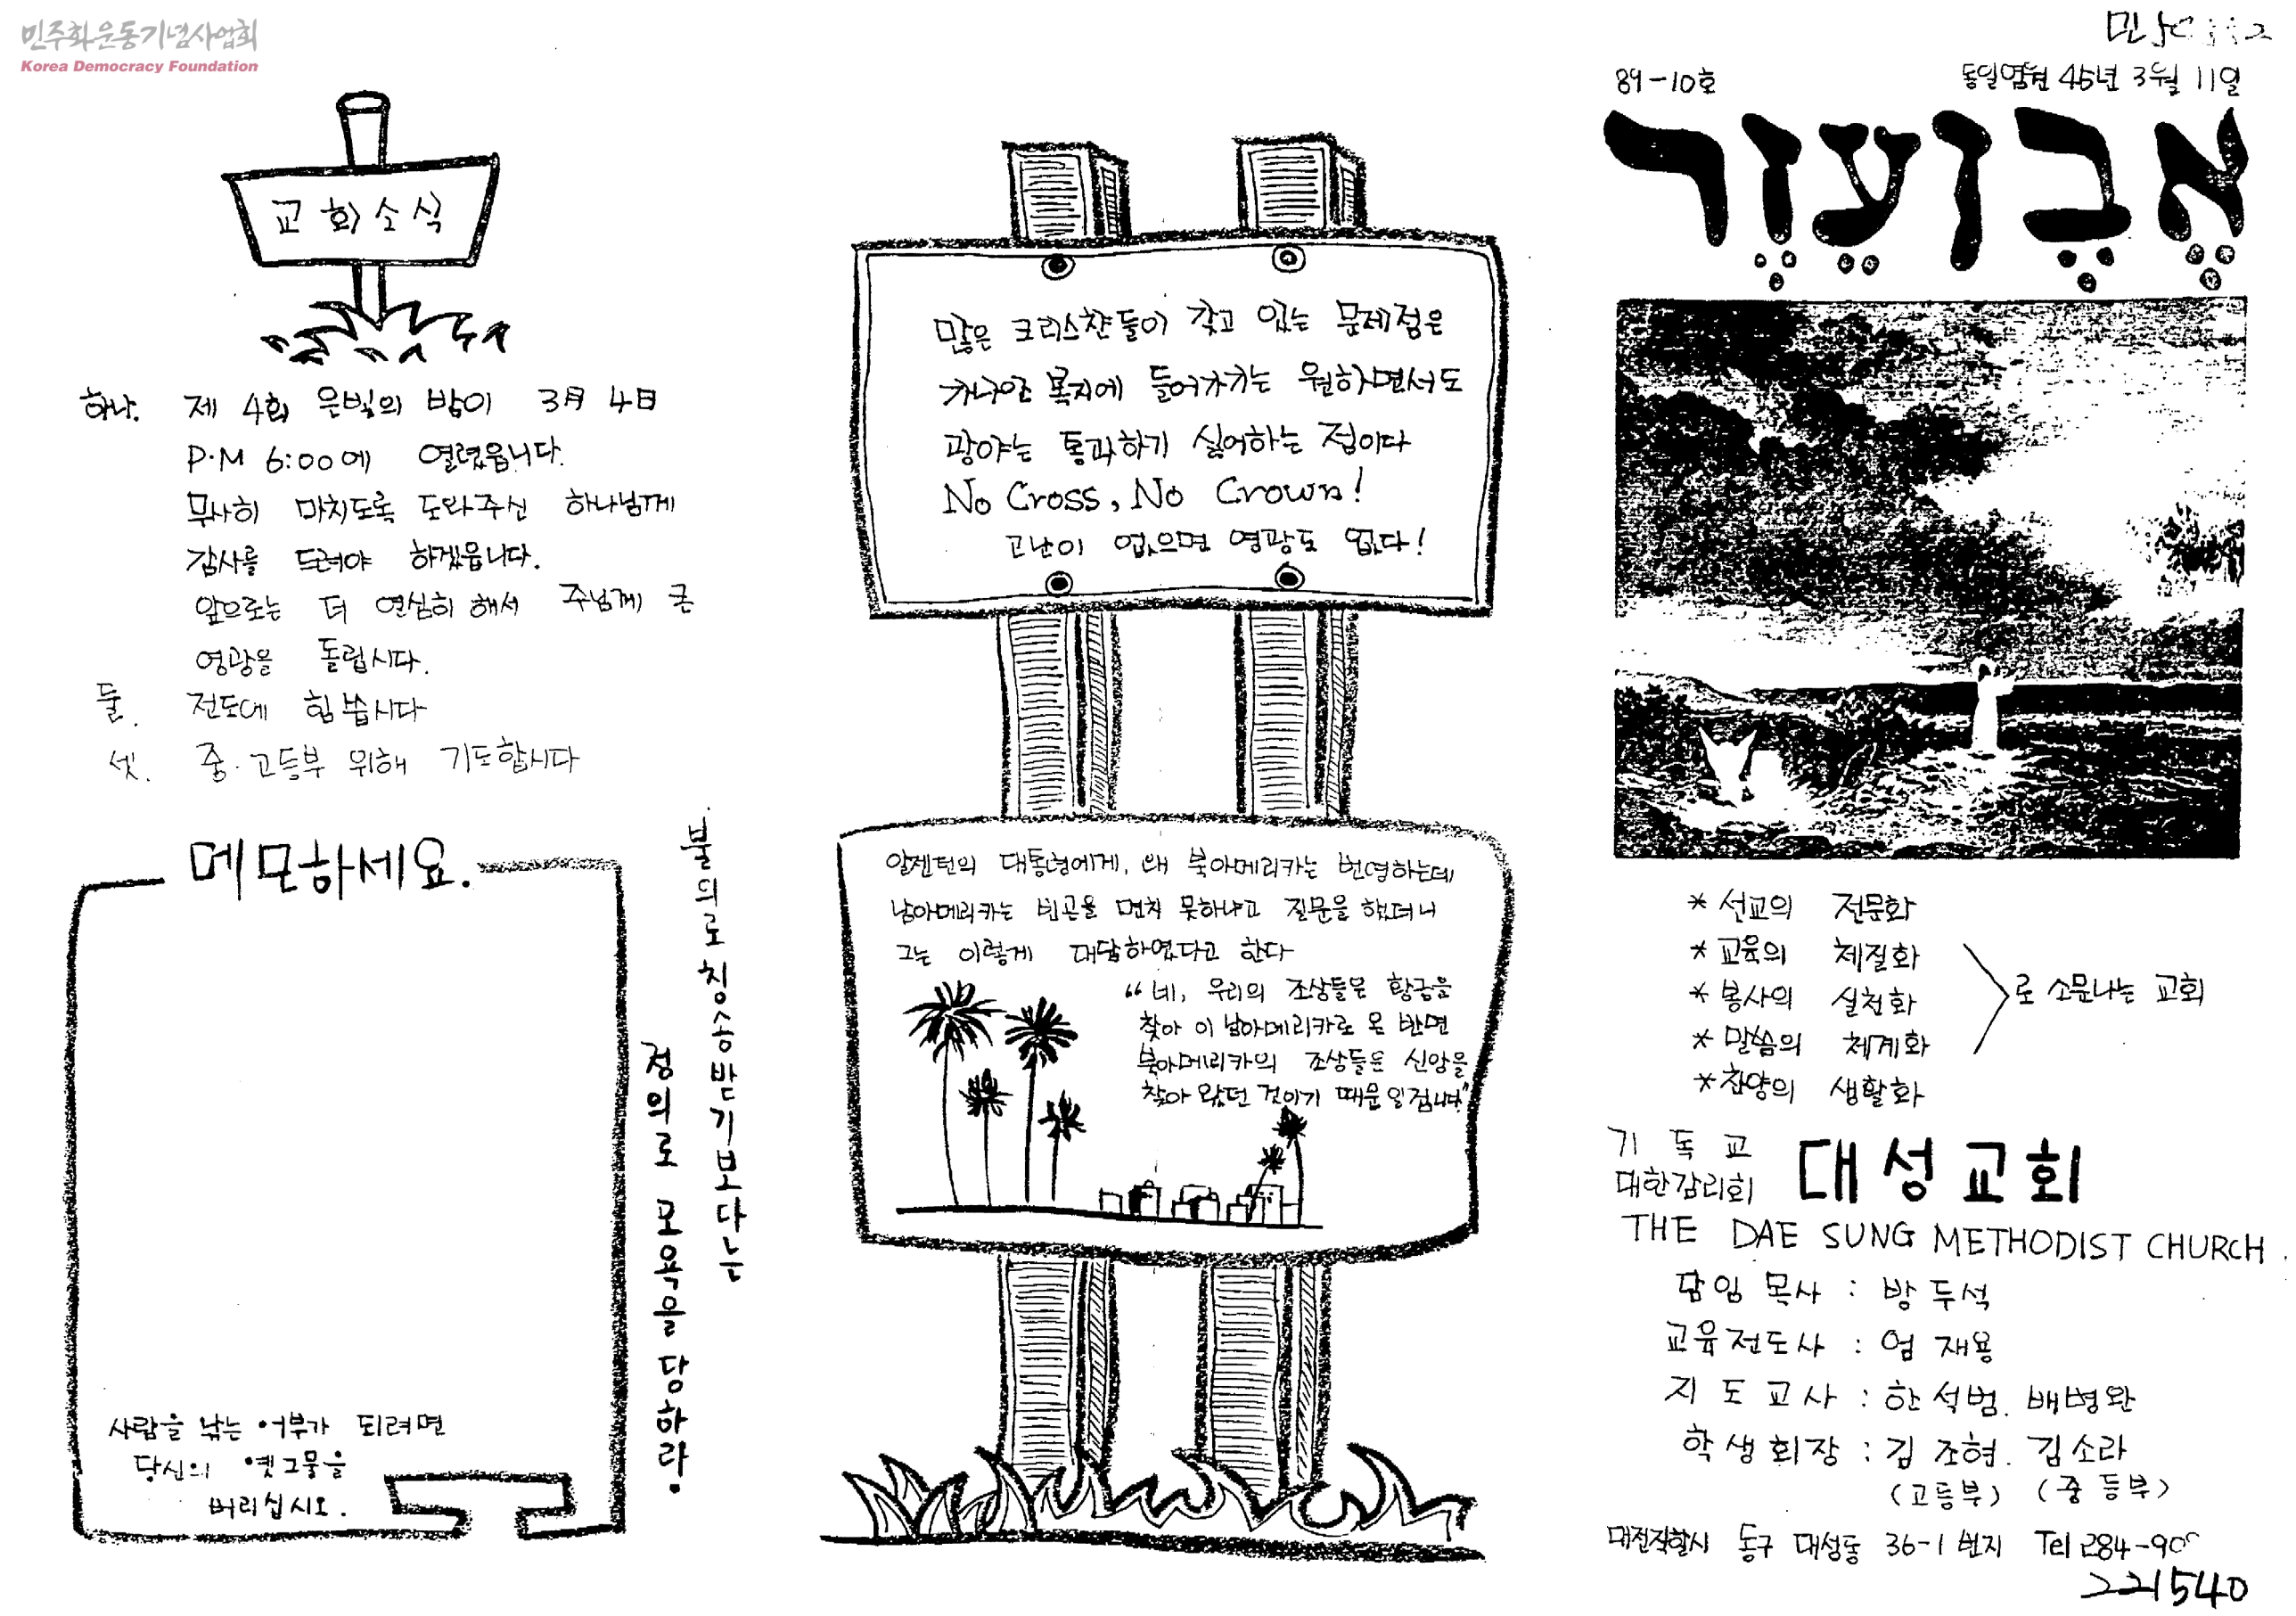 민주화운동기념사업회
Korea Democracy Foundation
교회소식
하나. 제 4회 은빛의 밤이 3月 4日
P·M 6:00에 열렸읍니다.
무사히 마치도록 도와주신 하나님께
감사를 드려야 하겠읍니다.
앞으로는 더 열심히 해서 주님께 큰
영광을 돌립시다.
둘. 전도에 힘씁시다
셋. 중·고등부 위해 기도합시다
메모하세요.
사람을 낚는 어부가 되려면
당신의 옛그물을
버리십시오.
불의로 칭송받기보다는
정의로 모욕을 당하라.
많은 크리스챤들이 갖고 있는 문제점은
가나안 복지에 들어가기는 원하면서도
광야는 통과하기 싫어하는 점이다
No Cross, No Crown!
고난이 없으면 영광도 없다!
알젠틴의 대통령에게, 왜 북아메리카는 번영하는데
남아메리카는 빈곤을 면치 못하냐고 질문을 했더니
그는 이렇게 대답하였다고 한다
“네, 우리의 조상들은 황금을
찾아 이 남아메리카로 온 반면
북아메리카의 조상들은 신앙을
찾아 왔던 것이기 때문일겁니다"
89-10호 통일염원 45년 3월 11일
אֶבֶןעֵזֶר
* 선교의 전문화
* 교육의 체질화
* 봉사의 실천화
* 말씀의 체계화
* 찬양의 생활화
로 소문나는 교회
기독교
대한감리회
대성교회
THE DAE SUNG METHODIST CHURCH.
담임목사 : 방두석
교육전도사 : 엄재용
지도교사 : 한석범. 배병완
학생회장 : 김조현. 김소라
(고등부) (중등부)
대전직할시 동구 대성동 36-1번지 Tel 284-90
221540